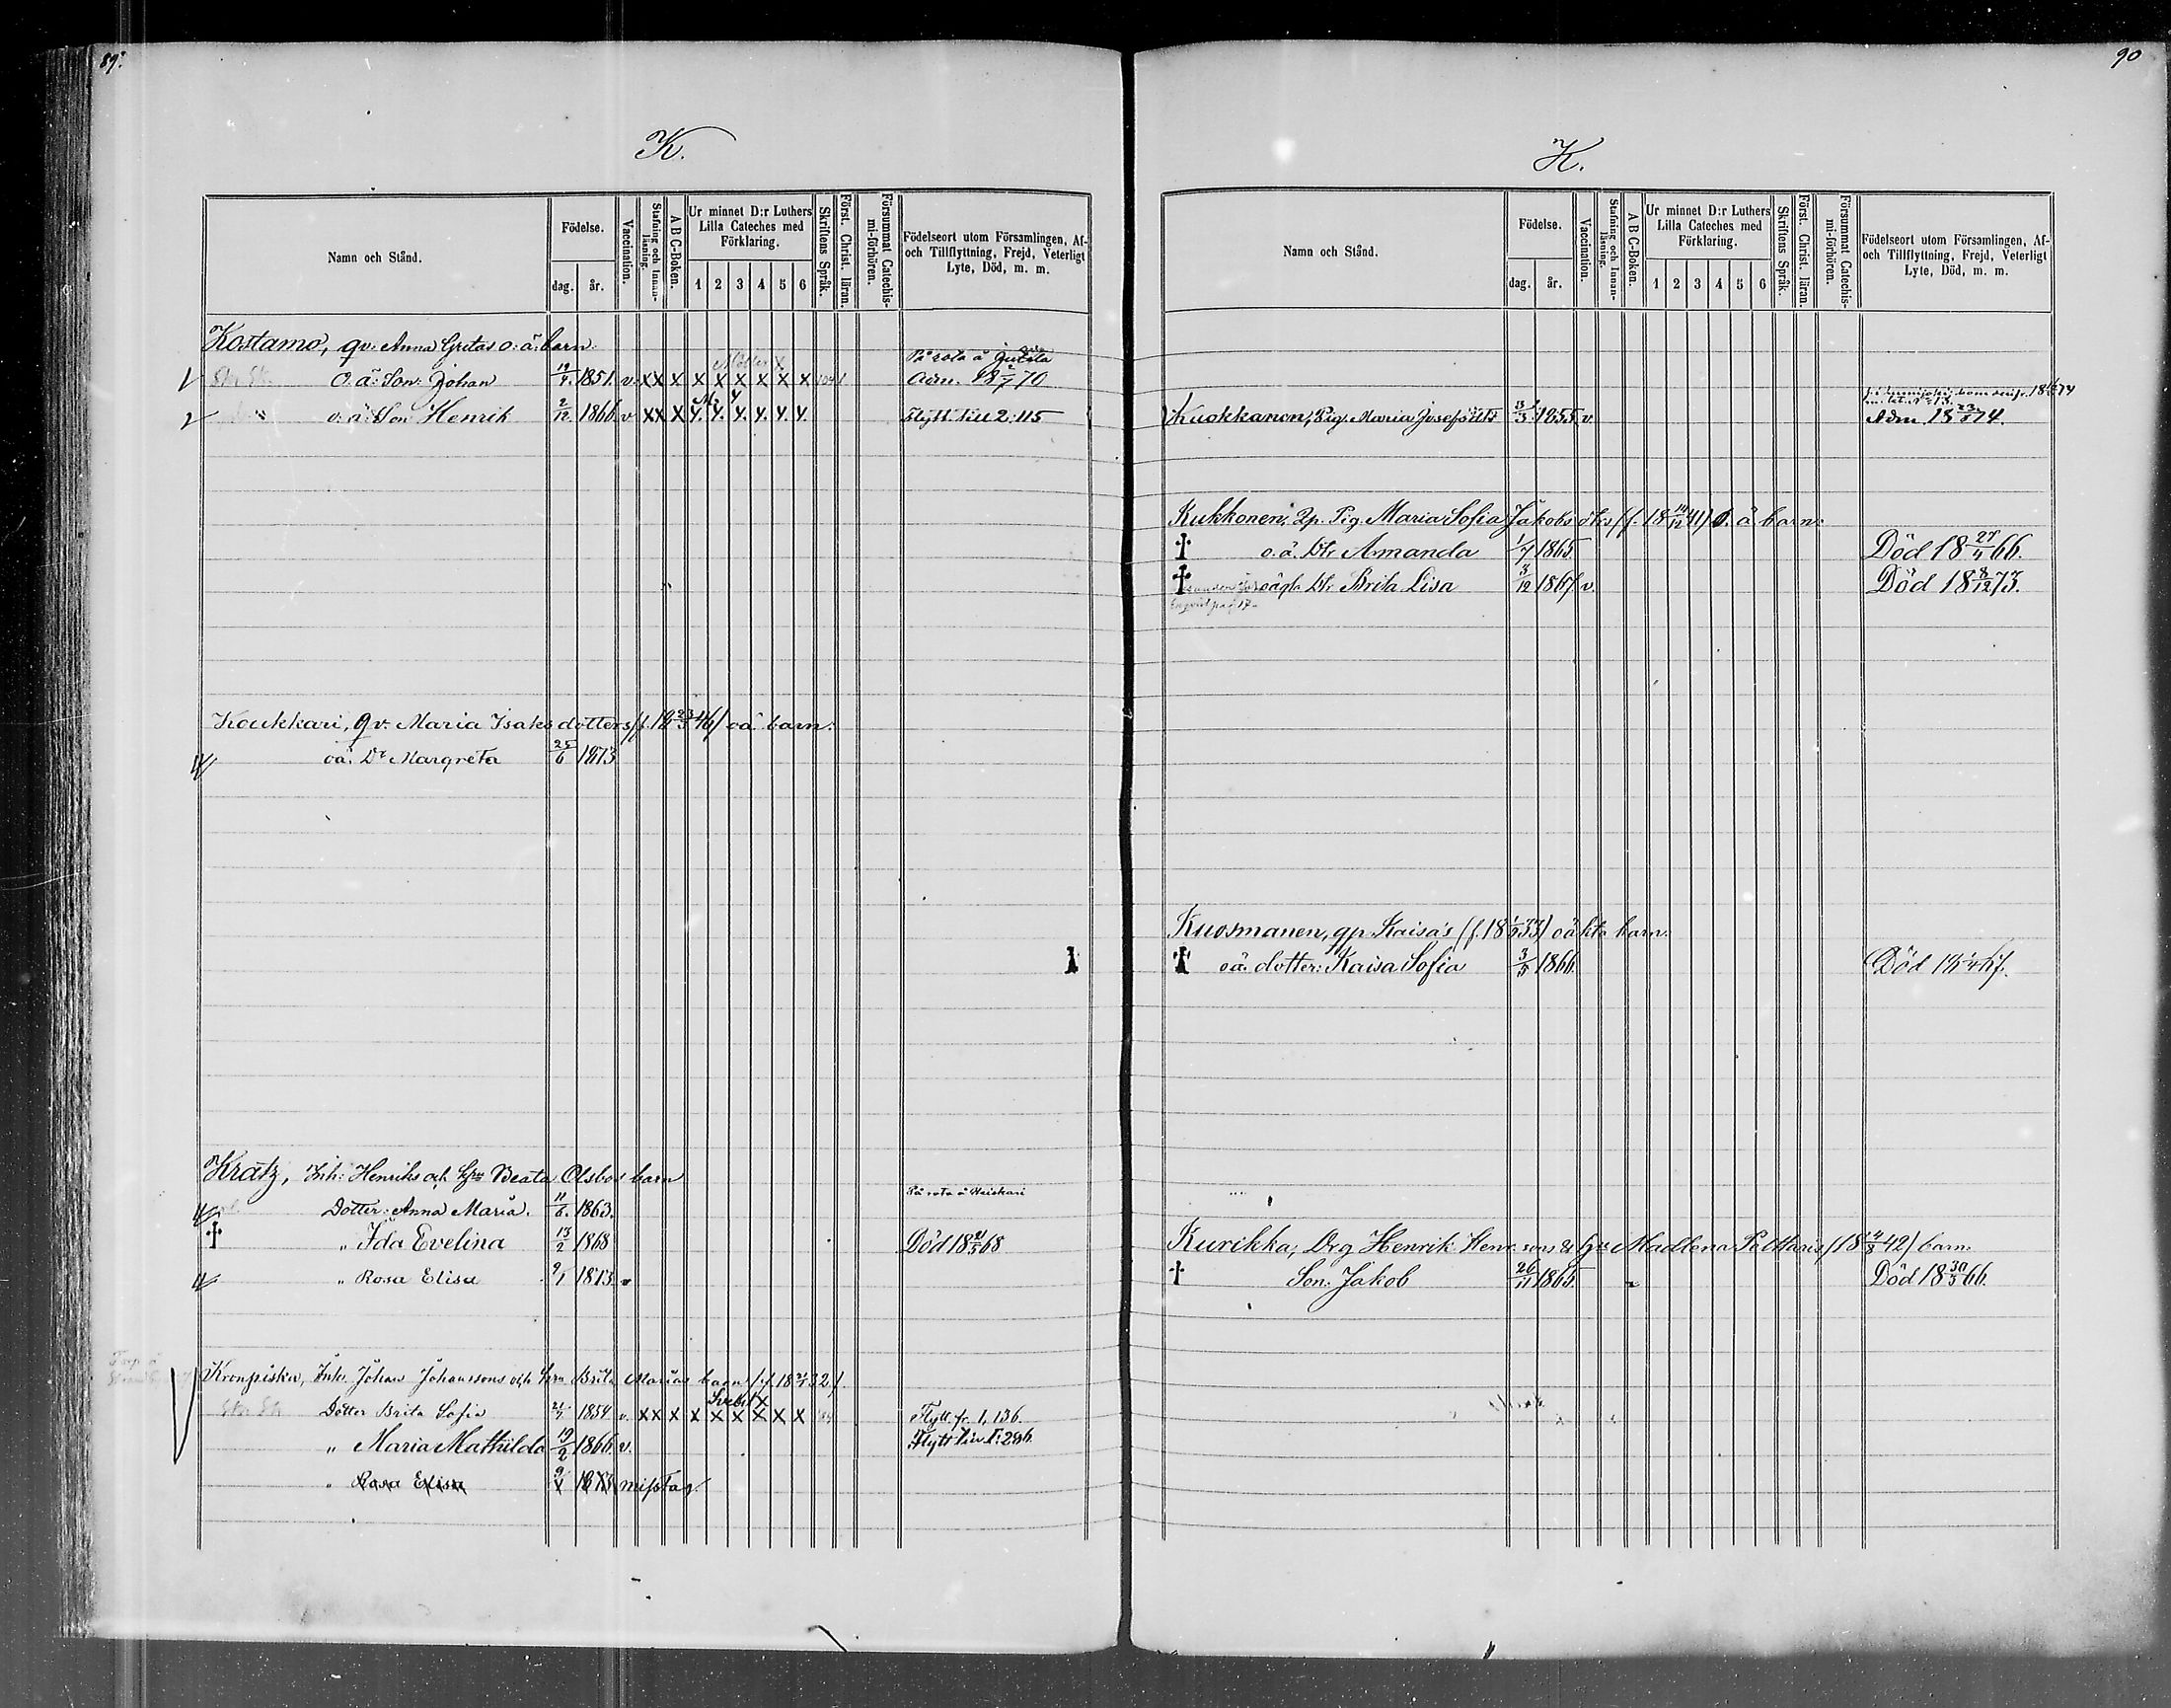 89.
K.
Namn och Stånd.
Födelse.
dag.
år.
Vaccination.
Stafning och Innan-läsning.
A B C-Boken.
Ur minnet D:r Luthers Lilla Cateches med Förklaring.
1 2 3 4 5 6
Skriftens Språk.
Först. Christ. läran.
Försummat Catechis-mi-förhören.
Födelseort utom Församlingen, Af- och Tillflyttning, Frejd, Veterligt Lyte, Död, m. m.
Kostamo, qv. Anna Gretas o. ä. barn.
På rota å
O. ä. Son: Johan 19/4. 1851. v. X X X X X X X X X Adm. 18 2/7 70
o. ä. Son Henrik 2/12. 1866. v X X X Y. Y. Y. Y. Y. Y. Flytt. till 2:115
Koukkari, qv. Maria Isaksdotters (f. 18 23/3 46) oä barn:
oä. Dr Margreta 25/6 1873
Kratz, Inh: Henriks och Hru Beata Olsbos barn
På rota å Heiskari
Dotter: Anna Maria. 11/6. 1863.
† " Ida Evelina 13/2 1868 Död 18 21/5 68
" Rosa Elisa 9/1 1873 v
Kronpiska, Inh. Johan Johanssons och Hru Brita Marias barn
Dotter Brita Sofia 21/7 1854 v. X X X X X X X X X Flytt. fr. 1, 136.
" Maria Mathilda 19/2 1866 v. Flytt till I: 296.
" Rosa Elisa 9/1 1873 misstag
90
K.
Namn och Stånd.
Födelse.
dag.
år.
Vaccination.
Stafning och Innan-läsning.
A B C-Boken.
Ur minnet D:r Luthers Lilla Cateches med Förklaring.
1 2 3 4 5 6
Skriftens Språk.
Först. Christ. läran.
Försummat Catechis-mi-förhören.
Födelseort utom Församlingen, Af- och Tillflyttning, Frejd, Veterligt Lyte, Död, m. m.
Kuokkanen, Pig. Maria Josefsdtr 3/3 1855 v. Adm. 18 23/5 74.
Kukkonen, Qp. Pig. Maria Sofia Jakobsdtrs (f. 18 14/12 41) O. ä barn:
† o.ä. Dtr Amanda 1/7 1865 Död 18 27/4 66.
† oägta Dtr Brita Lisa 3/12 1867. v. Död 18 8/12 73.
Kuosmanen, qp. Kaisa's (f. 18 1/9 33) oäkta barn.
† oä. dotter: Kaisa Sofia 3/5 1866. Död
Kurikka, Drg Henrik Henr.sons & Hus Madlena Pelttaris barn.
† Son: Jakob 26/11 1865. Död 18 30/5 66.